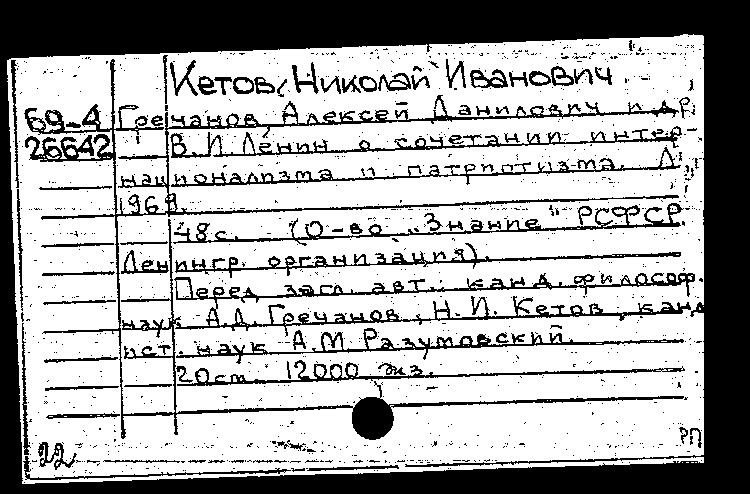 Кетов, Николай Иванович
69-4 Гречанов, Алексей Данилович и др.
26642 В.И. Ленин о сочетании интер-
национализма и патриотизма. Л.,
1969.
48 с. (О-во „Знание" РСФСР
Ленингр. организация).
Перед загл. авт.: канд. философ.
наук А.Д. Гречанов, Н.И. Кетов, канд
ист. наук А.М. Разумовский.
20 см. 12000 экз.
22
РП